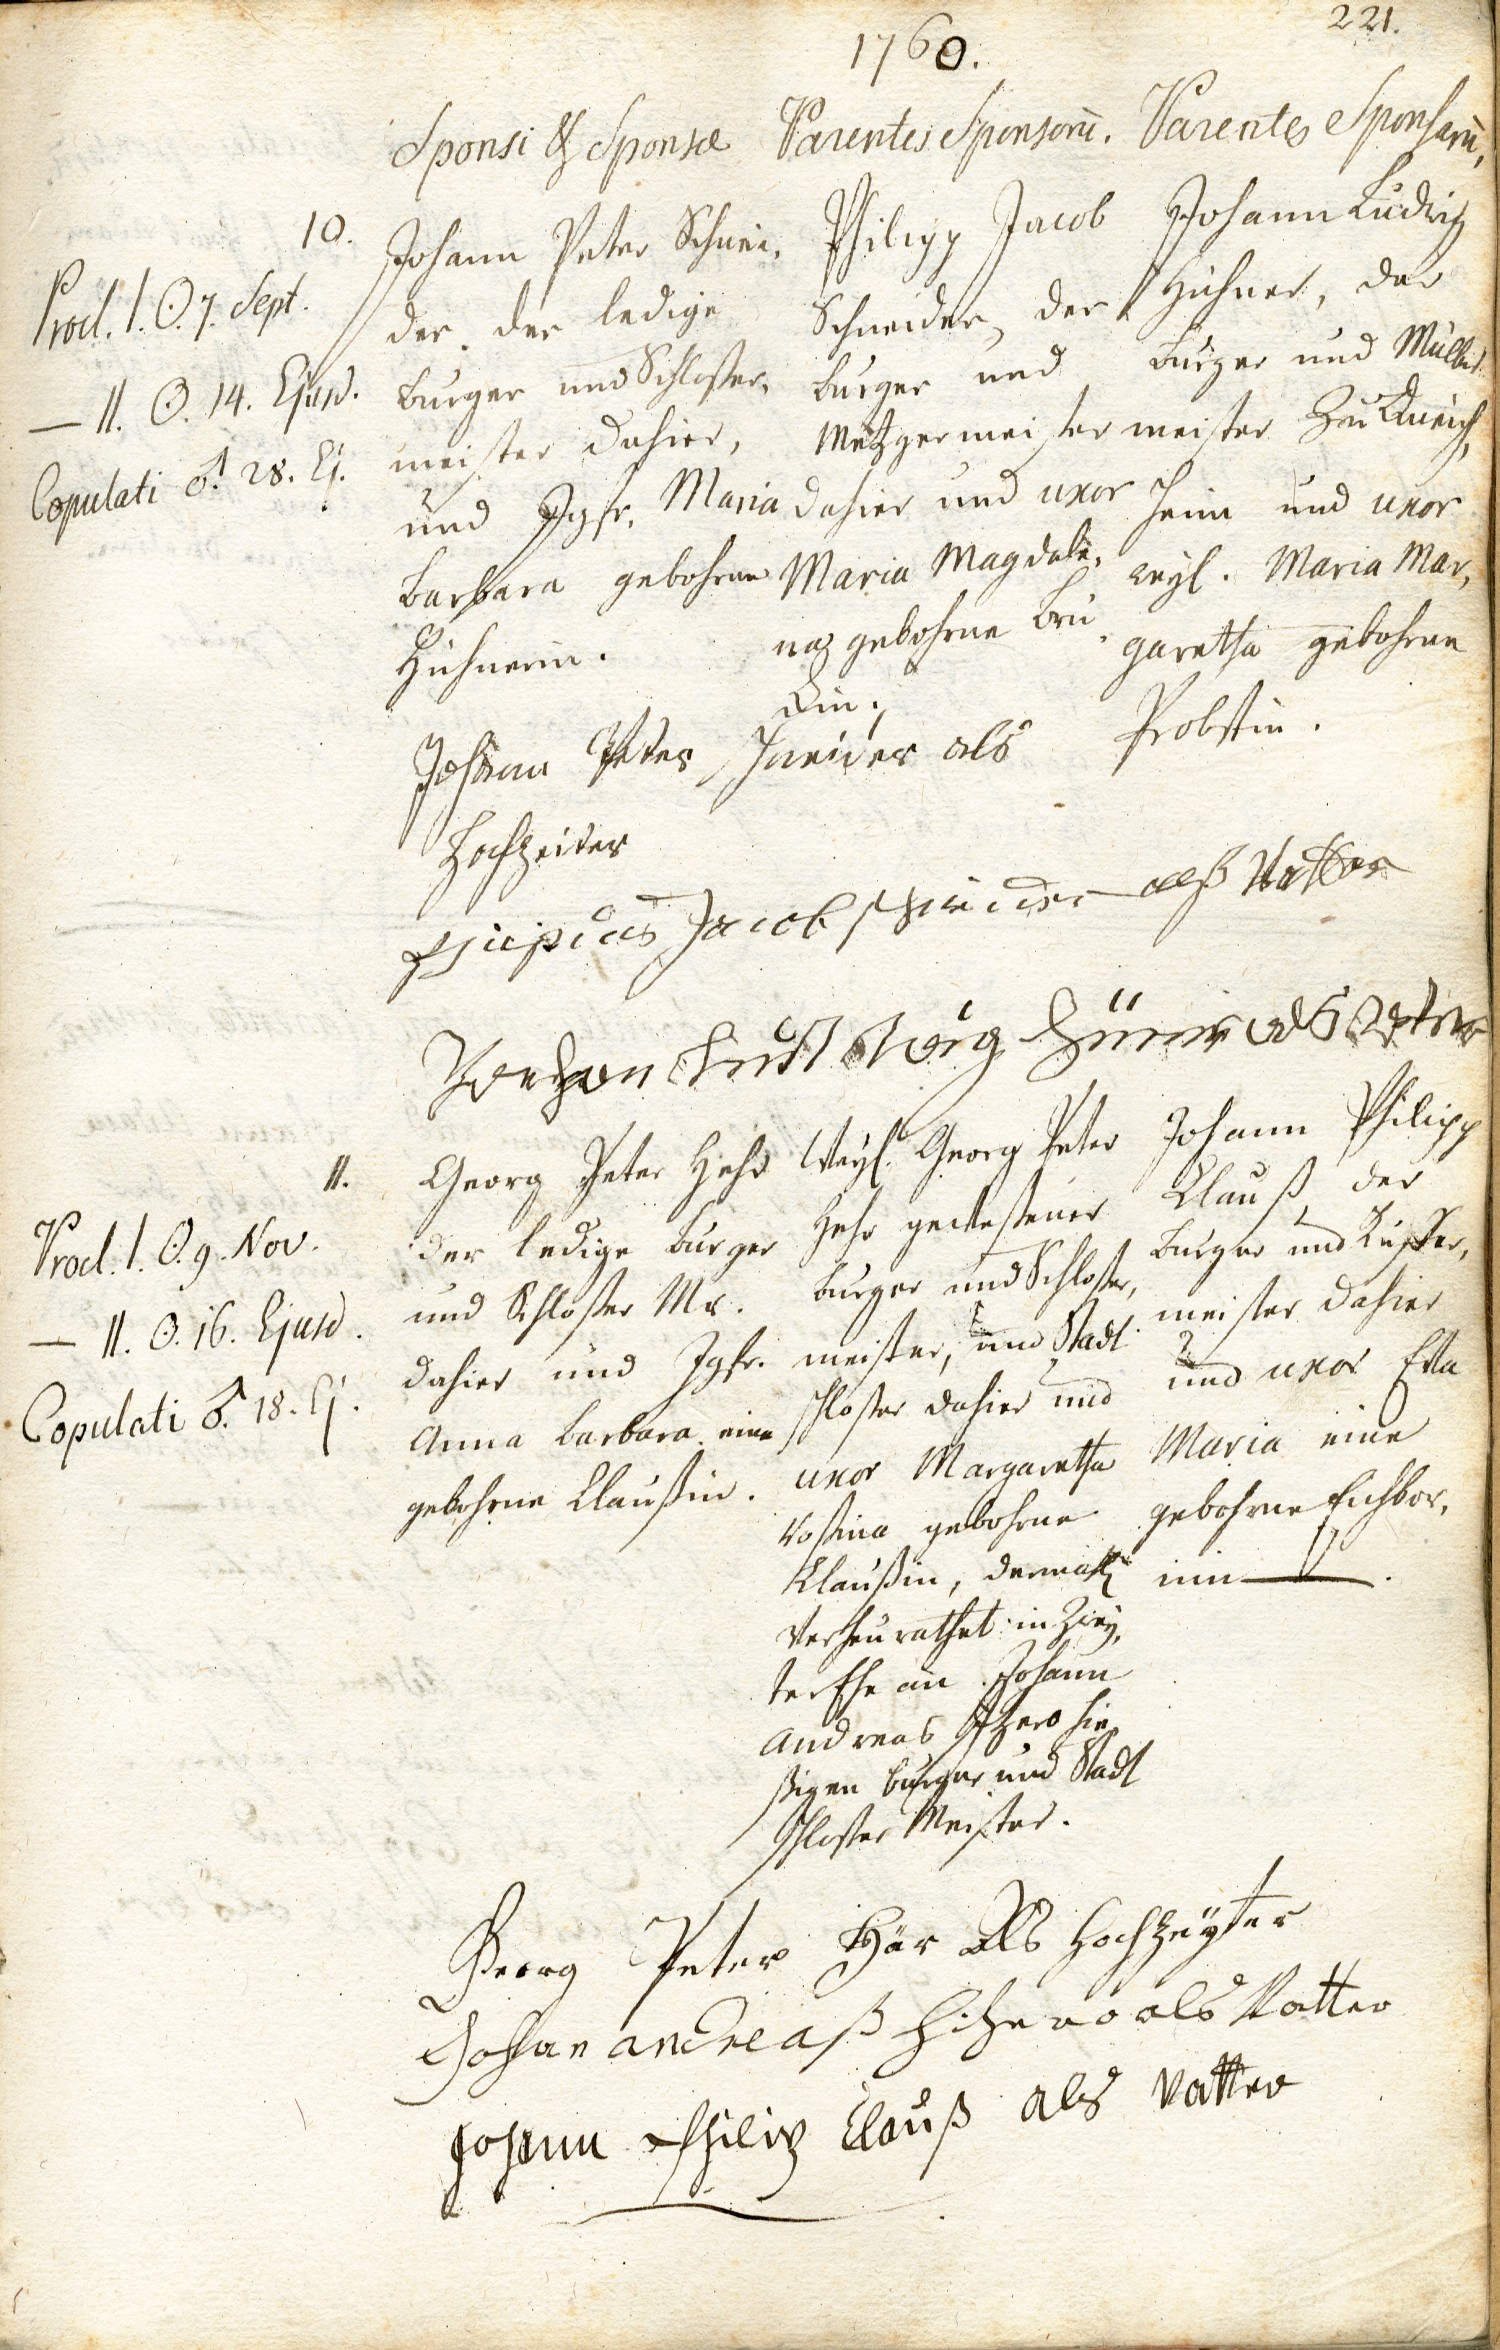 221.
1760.
Sponsi & Sponsæ
Parentes Sponsorū.
Parentes Sponsarū.
10.
Procl. 1. ☉. 7. Sept.
— 11. ☉. 14. Ejusd.
Copulati ♂. 28. Ej.
Johann Peter Schnei,
der, der ledige
Burger und Schloßer,
meister dahier,
und Jgfr. Maria
Barbara gebohrne
Hühnerin.
Philipp Jacob
Schneider, der
Burger und
Metzgermeister
dahier und uxor
Maria Magdale,
na gebohrne
Johann Ludwig
Hühner, der
Burger und Müller
meister zu
heim und uxor
weyl. Maria Mar,
garetha gebohrne
Probstin.
Johann Peter Schneider als
Hochzeiter
Jacob Schneider alß Vatter
als Vatter
11.
Procl. 1. ☉. 9. Nov.
— 11. ☉. 16. Ejusd.
Copulati ♂. 18. Ej.
Georg Peter Hehr
der ledige Burger
und Schloßer Mr.
dahier und Jgfr.
Anna Barbara eine
gebohrne Claußin.
Weyl. Georg Peter
Hehr geweßener
Burger und Schloßer,
meister, und Stadt
schloßer dahier und
uxor Margaretha
Rosina gebohrne
Claußin, dermahl
verheurathet in zwey,
ter Ehe an Johann
Andreas hie
ßigen Burger und Stadt
Schloßer Meister.
Johann Philipp
Clauß, der
Burger und Küffer,
meister dahier
und uxor Eva
Maria eine
gebohrne Eichhor,
nin.
Georg Peter Här Als Hochzeyter
Johan andreaß als Vatter
Johann Philip Clauß als Vatter